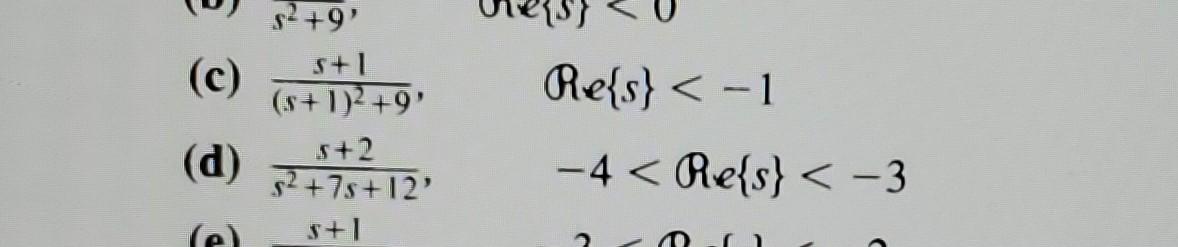 (b) s²+9, Re{s} < 0
(c) s+1/(s+1)²+9, Re{s} < −1
(d) s+2/s²+7s+12, −4 < Re{s} < −3
(e) s+1